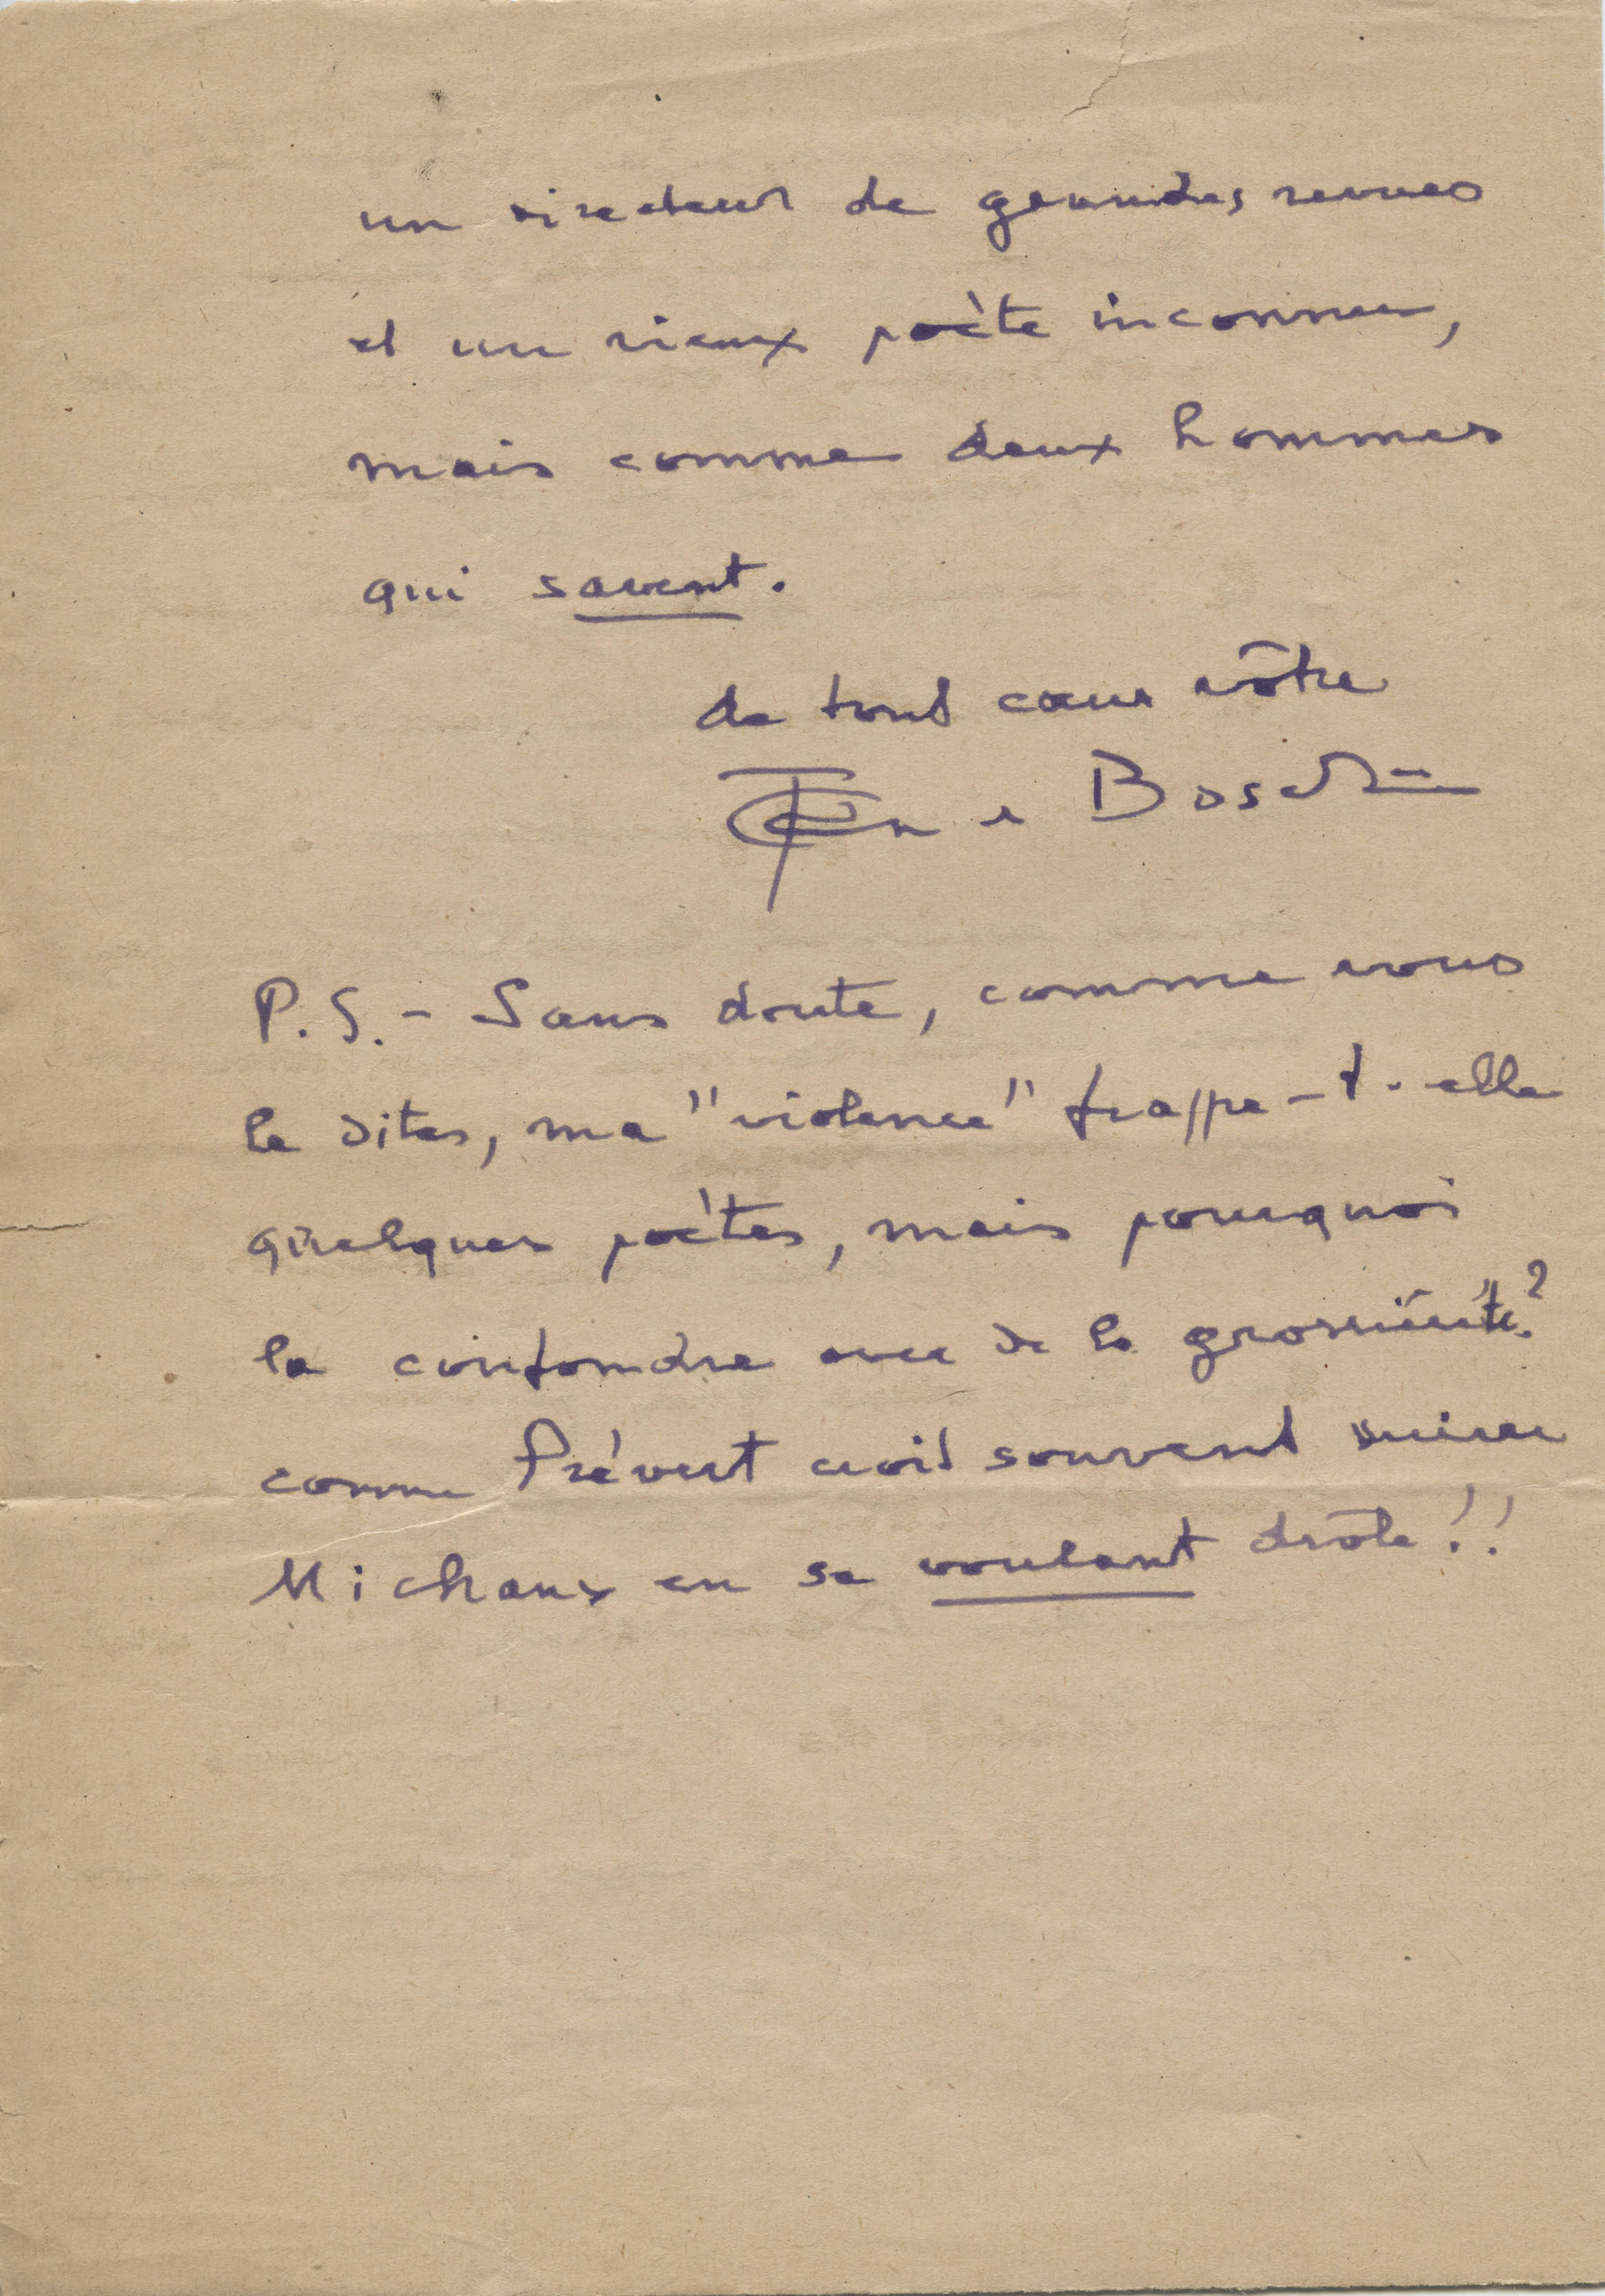 un directeur de grandes revues
et un vieux poète inconnu,
mais comme deux hommes
qui savent.
de tout cœur vôtre
Bosch
P.S. - Sans doute, comme vous
le dites, ma "violence" frappe-t-elle
quelques poètes, mais pourquoi
la confondre avec de la grossièreté?
comme Prévert croit souvent suivre
Michaux en se voulant drôle!!